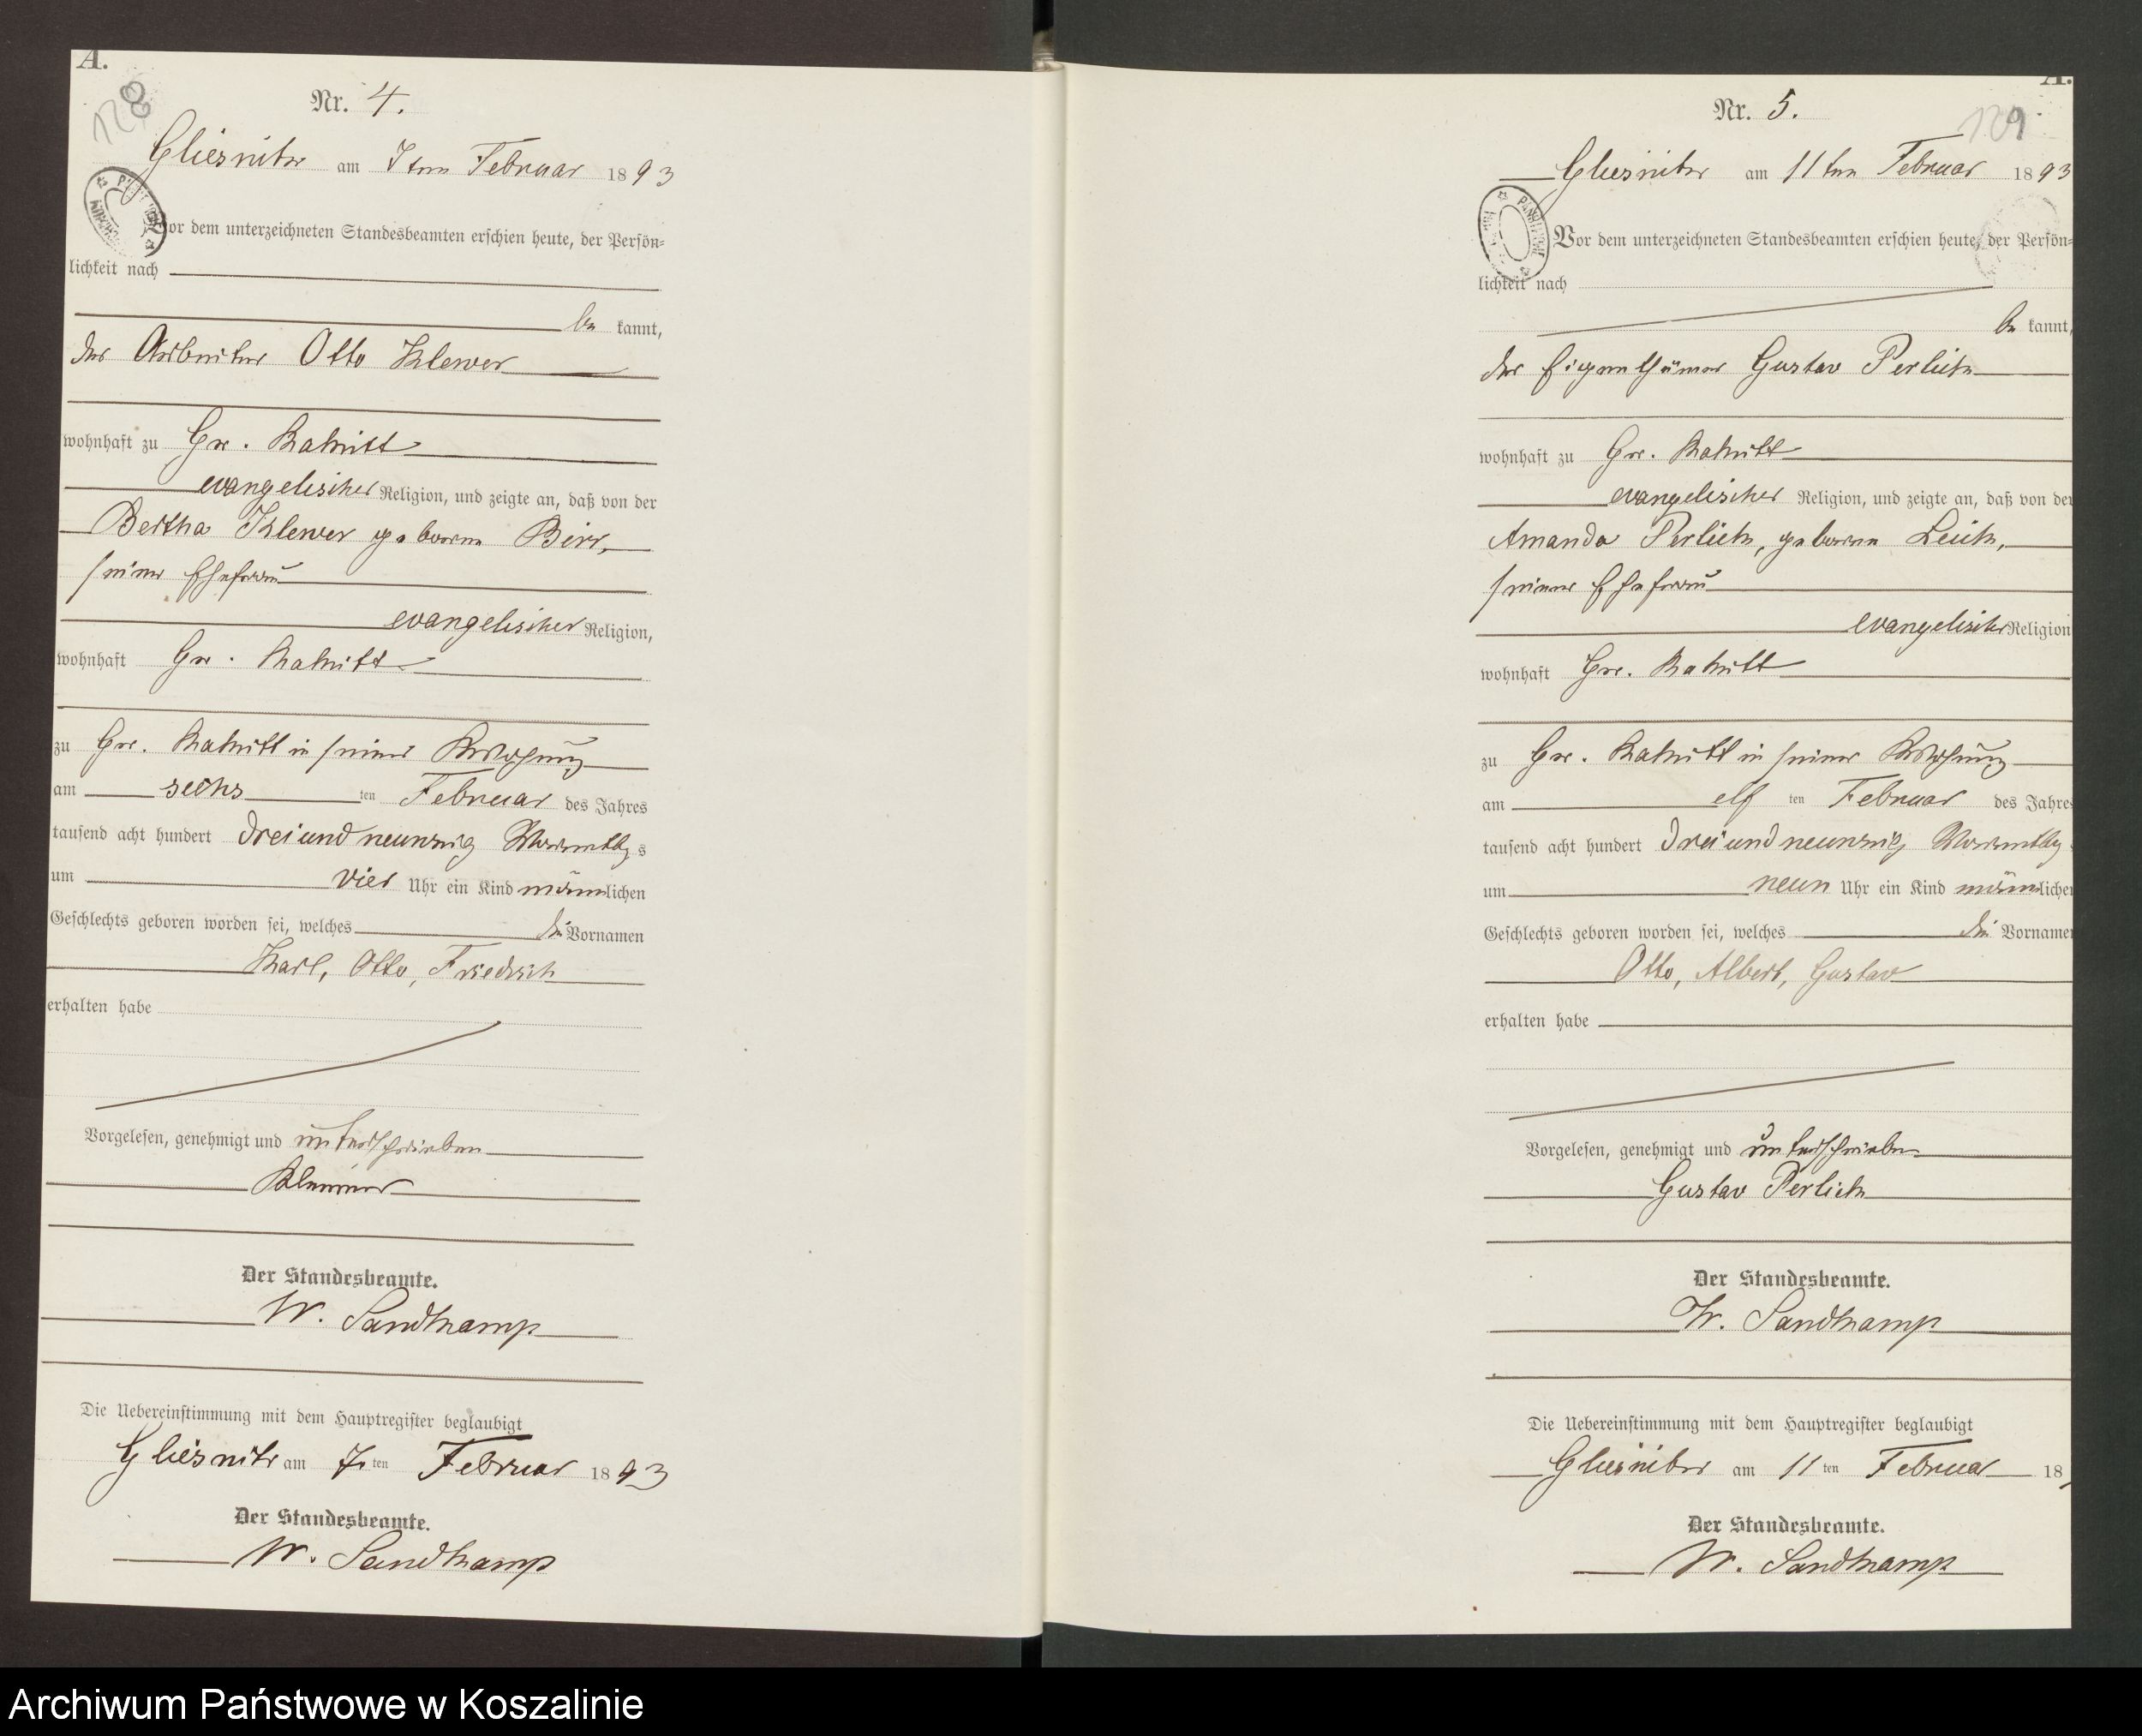 A.
128
Nr. 4.
Gliesnitz am 7ten Februar 1893
Vor dem unterzeichneten Standesbeamten erschien heute, der Persön=
lichkeit nach
be kannt,
der Arbeiter Otto Klewer
wohnhaft zu Gr.
evangelischer Religion, und zeigte an, daß von der
Bertha Klewer geborene Birr,
seiner Ehefrau
evangelischer Religion,
wohnhaft Gr.
zu Gr. in seiner Wohnung
am sechs ten Februar des Jahres
tausend acht hundert dreiundneunzig Vormittags
um vier Uhr ein Kind männlichen
Geschlechts geboren worden sei, welches die Vornamen
Karl, Otto, Friedrich
erhalten habe
Vorgelesen, genehmigt und unterschrieben
Der Standesbeamte.
W. Sandkamp
Die Uebereinstimmung mit dem Hauptregister beglaubigt
Gliesnitz am 7. ten Februar 1893
Der Standesbeamte.
W. Sandkamp
A.
129
Nr. 5.
Gliesnitz am 11ten Februar 1893
Vor dem unterzeichneten Standesbeamten erschien heute, der Persön=
lichkeit nach
be kannt,
der Eigenthümer Gustav
wohnhaft zu Gr.
evangelischer Religion, und zeigte an, daß von der
Amanda geborene
seiner Ehefrau
evangelischer Religion
wohnhaft Gr.
zu Gr. in seiner Wohnung
am elf ten Februar des Jahres
tausend acht hundert dreiundneunzig Vormittag
um neun Uhr ein Kind männlichen
Geschlechts geboren worden sei, welches die Vornamen
Otto, Albert, Gustav
erhalten habe
Vorgelesen, genehmigt und unterschrieben
Gustav
Der Standesbeamte.
W. Sandkamp
Die Uebereinstimmung mit dem Hauptregister beglaubigt
Gliesnitz am 11 ten Februar 18
Der Standesbeamte.
W. Sandkamp
Archiwum Państwowe w Koszalinie